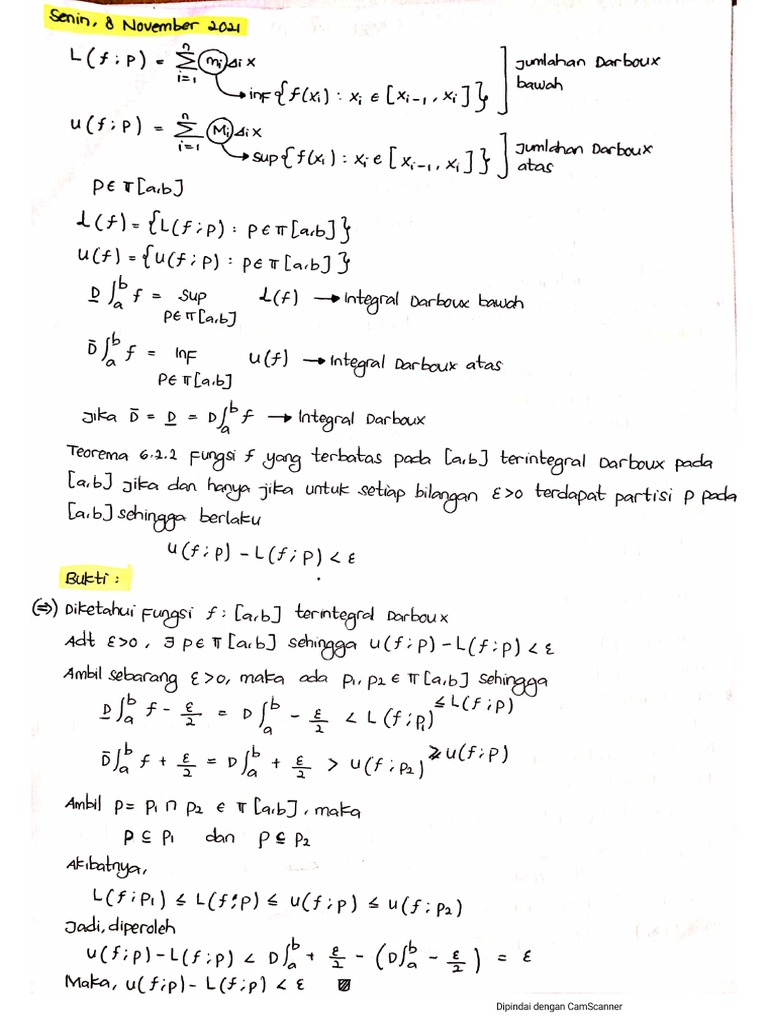 Senin, 8 November 2021
L(f;P) = n∑i=1 mi Δix ] Jumlahan Darboux bawah
→ inf{f(xi) : xi ∈ [xi-1, xi]}
U(f;P) = n∑i=1 Mi Δix ] Jumlahan Darboux atas
→ sup{f(xi) : xi ∈ [xi-1, xi]}
P ∈ π[a,b]
L(f) = {L(f;P) : P ∈ π[a,b]}
U(f) = {U(f;P) : P ∈ π[a,b]}
D̲∫ₐᵇ f = sup L(f) → Integral Darboux bawah
P ∈ π[a,b]
D̄∫ₐᵇ f = inf U(f) → Integral Darboux atas
P ∈ π[a,b]
Jika D̄ = D̲ = D∫ₐᵇ f → Integral Darboux
Teorema 6.2.2 Fungsi f yang terbatas pada [a,b] terintegral Darboux pada
[a,b] jika dan hanya jika untuk setiap bilangan ε>0 terdapat partisi P pada
[a,b] sehingga berlaku
U(f;P) - L(f;P) < ε
Bukti :
(⇒) Diketahui Fungsi f : [a,b] terintegral Darboux
Adt ε>0, ∃ P ∈ π[a,b] sehingga U(f;P) - L(f;P) < ε
Ambil sebarang ε>0, maka ada P₁, P₂ ∈ π[a,b] sehingga
D̲∫ₐᵇ f - ε/2 = D∫ₐᵇ - ε/2 < L(f;P₁) ≤ L(f;P)
D̄∫ₐᵇ f + ε/2 = D∫ₐᵇ + ε/2 > U(f;P₂) ≥ U(f;P)
Ambil P = P₁ ∩ P₂ ∈ π[a,b], maka
P ⊆ P₁ dan P ⊆ P₂
Akibatnya,
L(f;P₁) ≤ L(f;P) ≤ U(f;P) ≤ U(f;P₂)
Jadi, diperoleh
U(f;P) - L(f;P) < D∫ₐᵇ + ε/2 - (D∫ₐᵇ - ε/2) = ε
Maka, U(f;P) - L(f;P) < ε
Dipindai dengan CamScanner